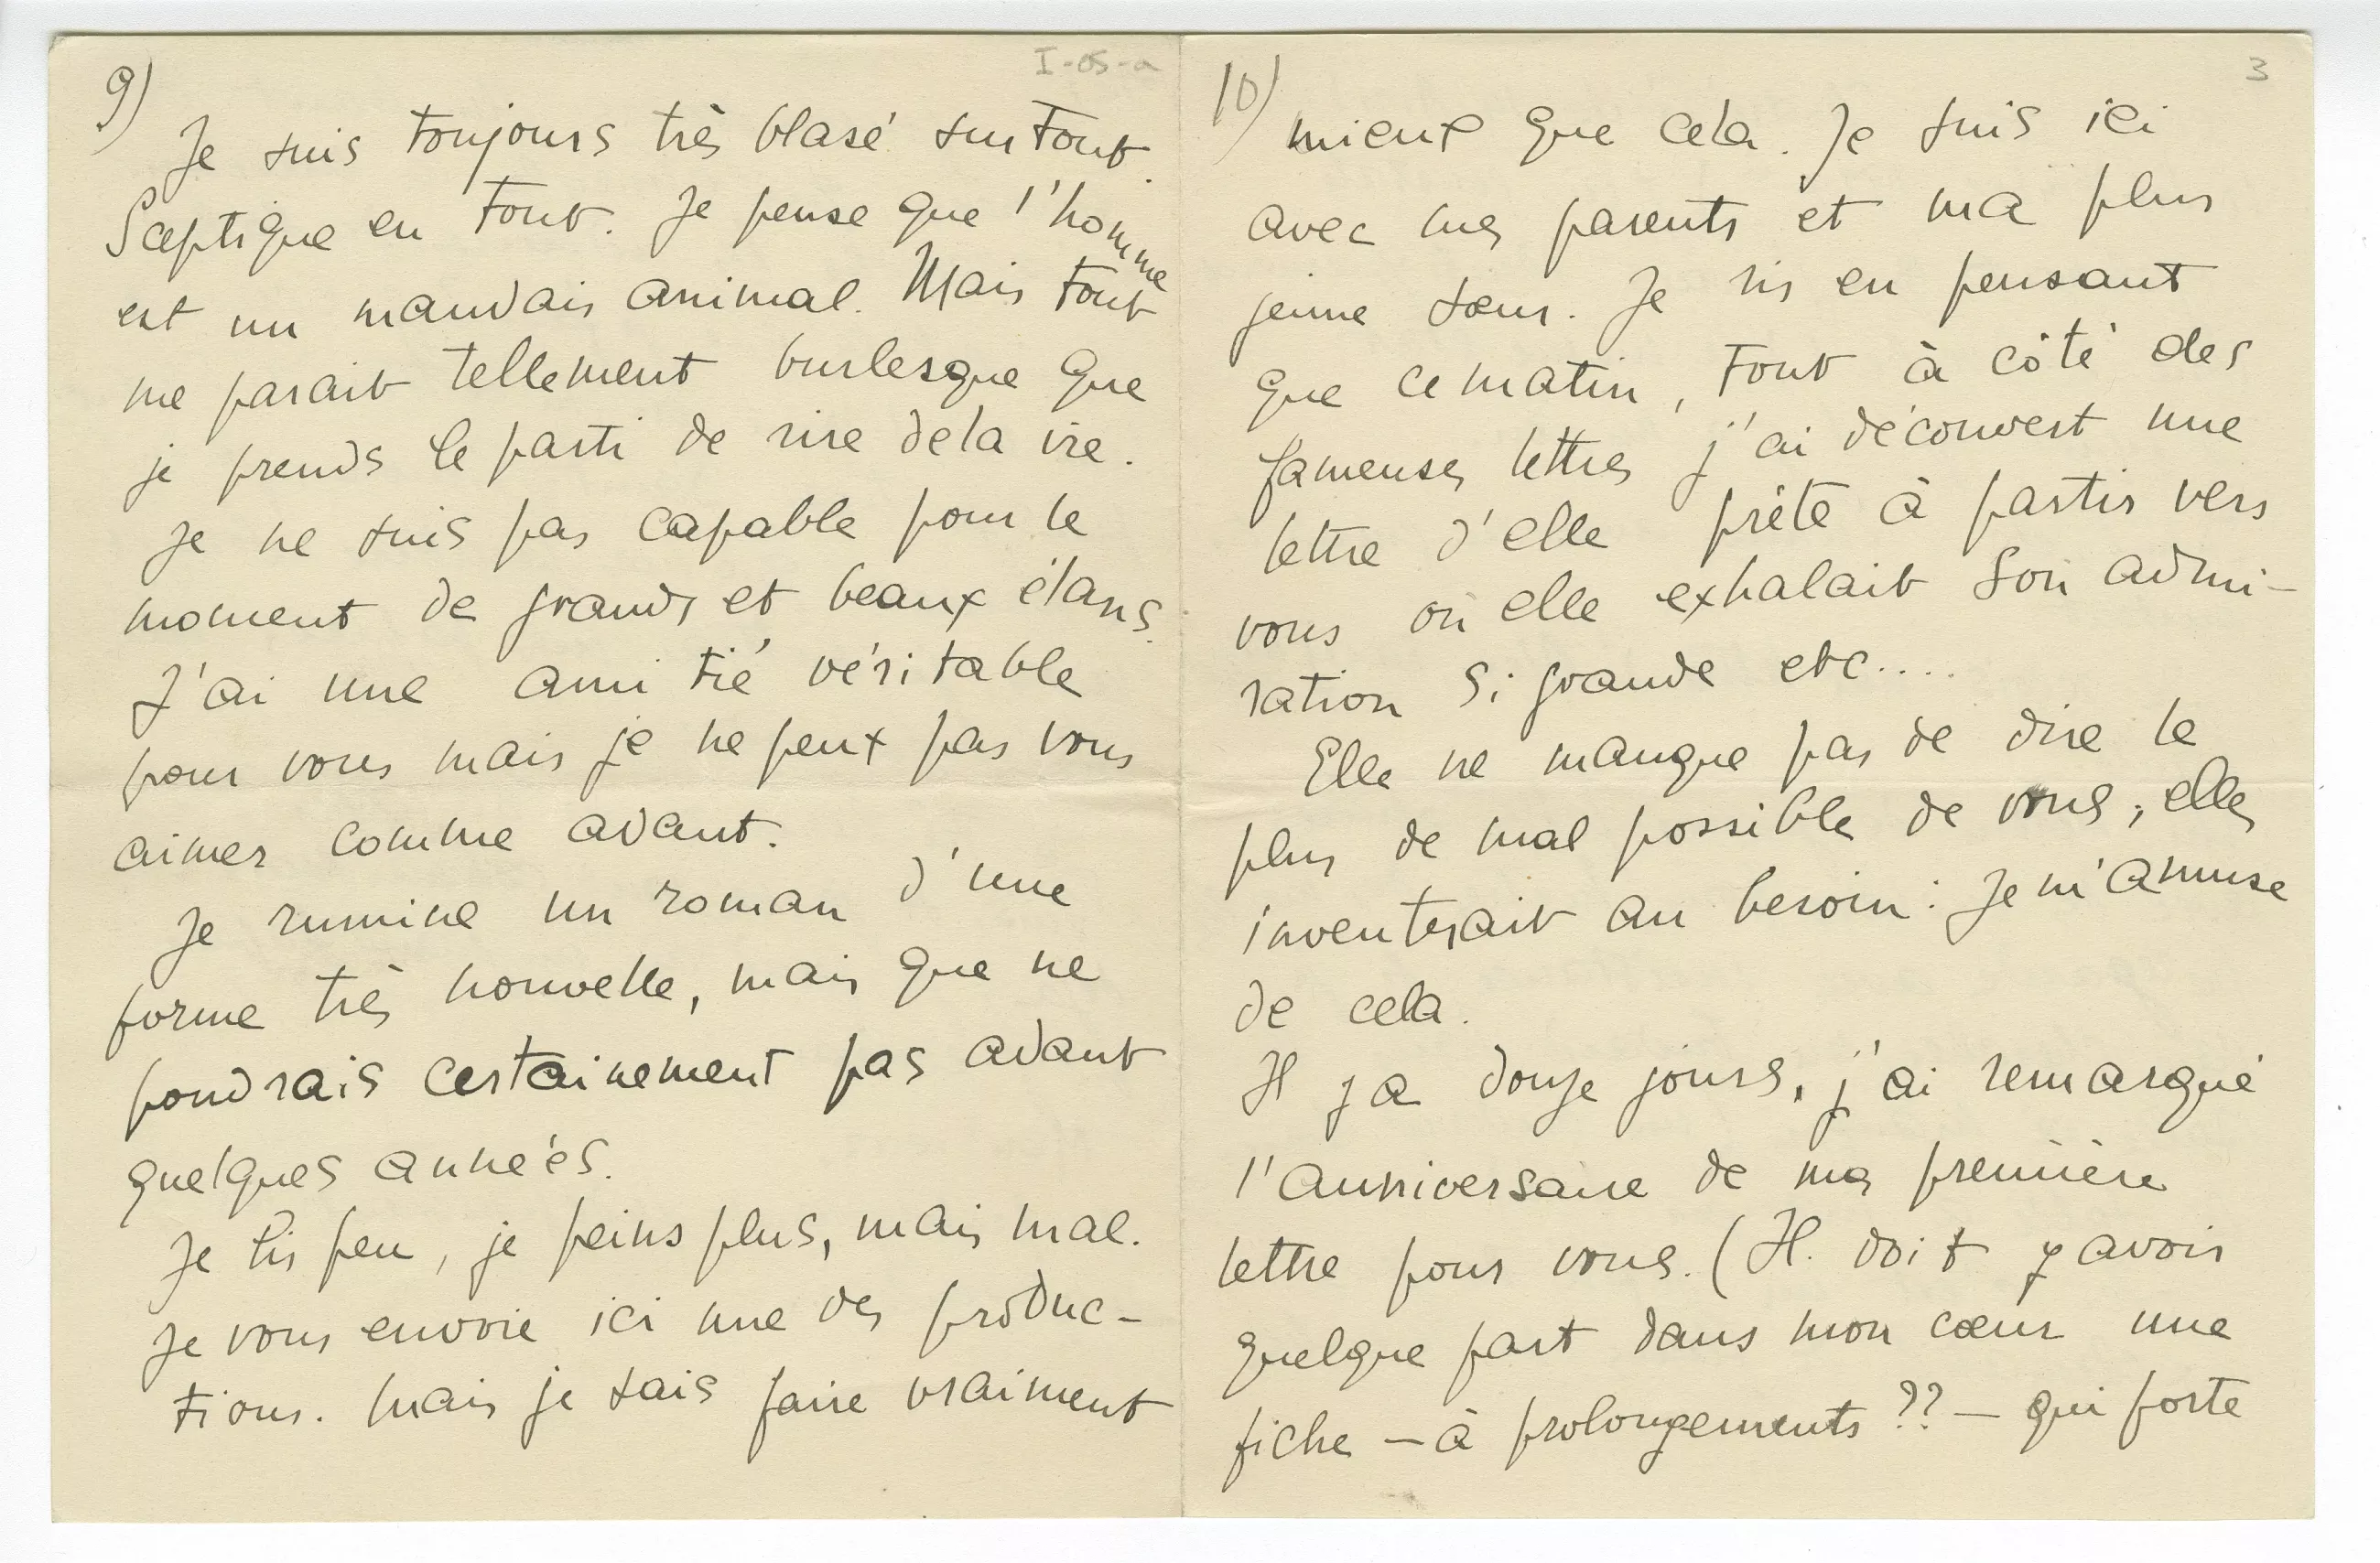 I-05-a
9)
Je suis toujours très blasé sur tout.
Sceptique en tout. Je pense que l'homme
est un mauvais animal. Mais tout
me parait tellement burlesque que
je prends le parti de rire de la vie.
Je ne suis pas capable pour le
moment de grands et beaux élans.
J'ai une amitié véritable
pour vous mais je ne peux pas vous
aimer comme avant.
Je rumine un roman d'une
forme très nouvelle, mais que ne
pondrais certainement pas avant
quelques années.
Je lis peu, je peins plus, mais mal.
Je vous envoie ici une des produc-
tions. Mais je sais faire vraiment
3
10)
mieux que cela. Je suis ici
avec mes parents et ma plus
jeune sœur. Je ris en pensant
que ce matin, tout à côté des
fameuses lettres j'ai découvert une
lettre d'elle prête à partir vers
vous où elle exhalait son admi-
ration si grande etc....
Elle ne manque pas de dire le
plus de mal possible de vous, elle
inventerait au besoin : Je m'amuse
de cela.
Il y a douze jours, j'ai remarqué
l'anniversaire de ma première
lettre pour vous. (Il doit y avoir
quelque part dans mon cœur une
fiche – à prolongements ?? – qui porte